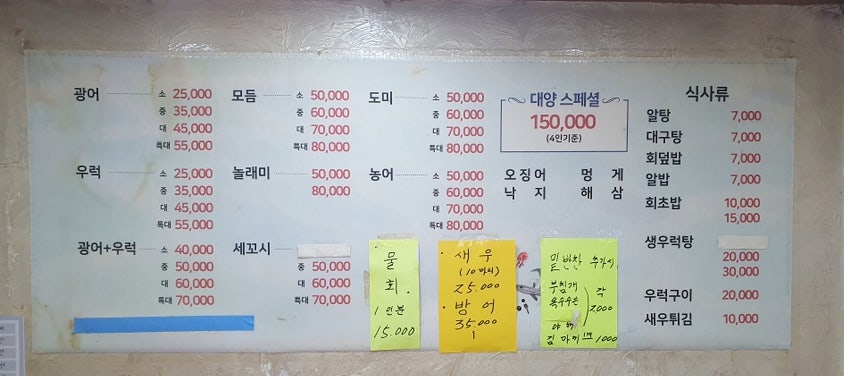 광어 소 25,000
중 35,000
대 45,000
특대 55,000
모듬 소 50,000
중 60,000
대 70,000
특대 80,000
도미 소 50,000
중 60,000
대 70,000
특대 80,000
대양 스페셜
150,000
(4인기준)
우럭 소 25,000
중 35,000
대 45,000
특대 55,000
놀래미 50,000
80,000
농어 소 50,000
중 60,000
대 70,000
특대 80,000
오징어 멍게
낙지 해삼
광어+우럭 소 40,000
중 50,000
대 60,000
특대 70,000
세꼬시
중 50,000
대 60,000
특대 70,000
물
회.
1인분
15.000
새우
(10마리)
25.000
방어
35.000
1
밑반찬 추가시
부침개
옥수수콘
각
2000
야채
김 마끼 1000
식사류
알탕 7,000
대구탕 7,000
회덮밥 7,000
알밥 7,000
회초밥 10,000
15,000
생우럭탕
20,000
30,000
우럭구이 20,000
새우튀김 10,000